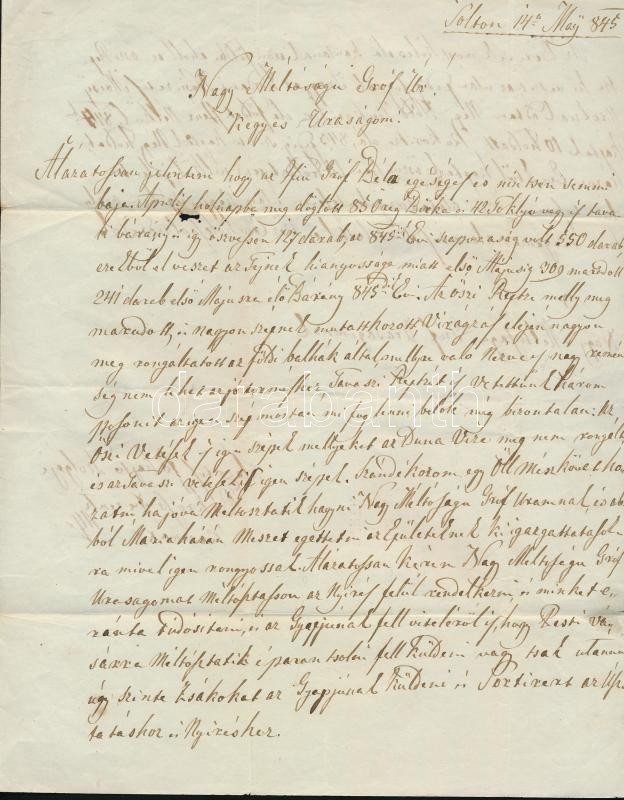 Solton 14ª Máÿ 845
Nagy Méltóságú Gróf Úr.
Kegyes Uraságom!
Alázatossan jelentem hogy az Ifiu Gróf Béla egeséges és nintsen semmi
baja. Aprilis holnapba meg döglött 830 reg Birka és 42 Toklyó vagy is tava-
li bárány és így öszvessen 127 darab, az 845 Évi szaporaság volt 550 darab
ezekböl el veszet az Tejnek hianyossága miatt első Májusig 309 maradott
241 darab első Májusra élő Bárány 845 Évi. Az őszi Reptze melly meg
maradott, és nagyon szépnek mutatkozott Virágzás elején nagyon
meg rongáltatott az földi balhák által, mellyre való Nezve és nagy remén
ség nem lehet a jó terméshez Tavaszi Reptzét is Vetettünk három
posonit az igen szép mostan mi fog lenni belőle még bizontalan: Az
Öszi Vetések is igen szépek mellyeket az Duna Vize meg nem rongált
és az Tavaszi vetések is igen szépek. Szándékozom egy Öll Mészkövet ho-
zatni hajóval Méltosztatik hagyni Nagy Méltóságú Gróf Uramnak, és ab-
ból Máriaházán Meszet egettetni az Épületeknek ki igazgattatásá-
ra mivel igen rongyossak. Alázatossan Kérem Nagy Méltóságú Gróf
Uraságomat Méltóztasson az Nyirés felül rendelkezni, és minket e-
ránta Tudósitani, és az Gyapjúnak fell viteléröl is, hogy Pesti Vá-
sárra Méltóztatik é parantsolni fell Küldeni vagy tsak utánna
úgy szinte Zsákokat az Gyapjúnak Küldeni és Sortirert az Úsz-
tatáshoz és Nyiréshez.
darabanth